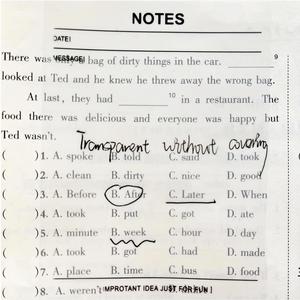 NOTES
DATE|
There was only a bag of dirty things in the car. ______ 9
MESSAGE|
looked at Ted and he knew he threw away the wrong bag.
At last, they had ______ 10 in a restaurant. The
food there was delicious and everyone was happy but
Ted wasn't.
Transparent without covering
( )1. A. spoke B. told C. said D. took
( )2. A. clean B. dirty C. nice D. good
( )3. A. Before B. After C. Later D. When
( )4. A. took B. put C. got D. ate
( )5. A. minute B. week C. hour D. day
( )6. A. took B. got C. had D. made
( )7. A. place B. time C. bus D. food
IMPROTANT IDEA JUST FOR FUN |
( )8. A. weren't